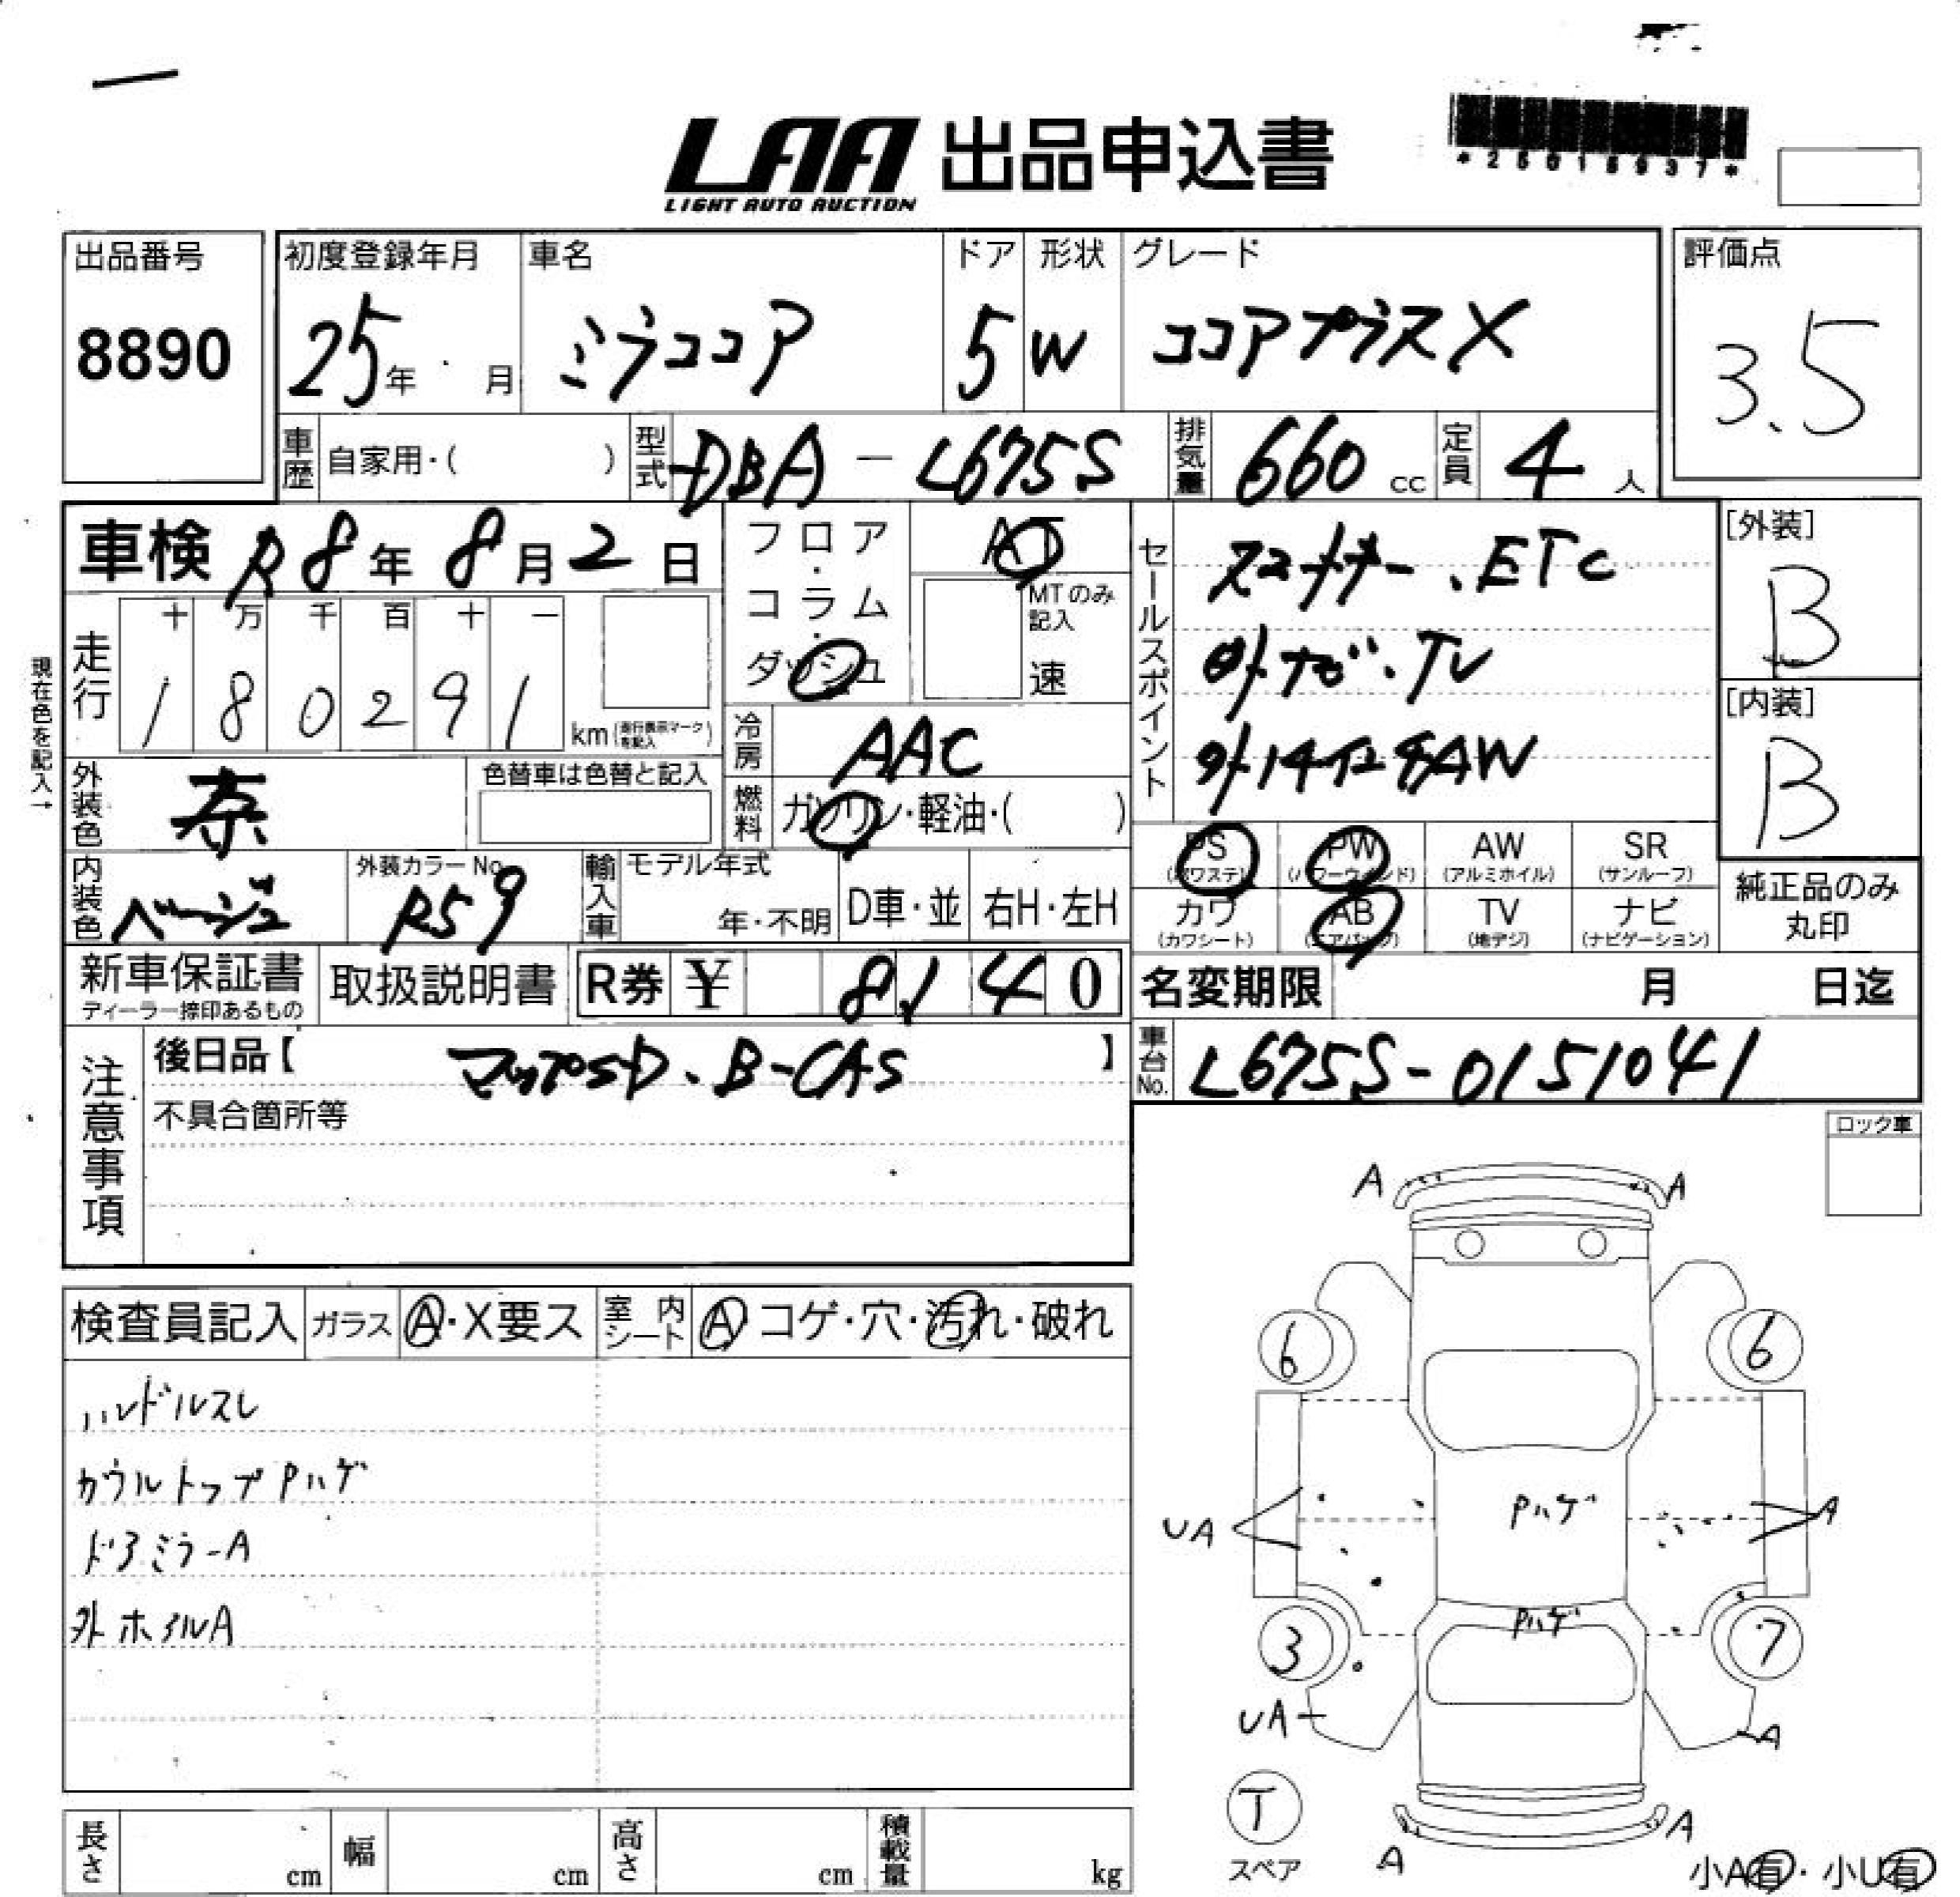 LAA 出品申込書
LIGHT AUTO AUCTION
出品番号 初度登録年月 車名 ドア 形状 グレード 評価点
8890 25年 月 ミラココア 5 W ココアプラスX 3.5
車歴 自家用・( ) 型式 DBA-L675S 排気量 660cc 定員 4人
車検 R8年8月2日 フロア・コラム・ダッシュ AT
MTのみ記入 速
セールスポイント
スマキー.ETC
外ナビ・TV
[外装] B
[内装] B
現在色を記入→
走行 十 万 千 百 十 一
1 8 0 2 9 1 km (走行表示マークを記入)
冷房 AAC
外装色 色替車は色替と記入
燃料 ガソリン・軽油・( )
PS (パワステ) PW (パワーウィンド) AW (アルミホイル) SR (サンルーフ)
カワ (カワシート) AB (エアバッグ) TV (地デジ) ナビ (ナビゲーション)
純正品のみ丸印
内装色 ベージュ 外装カラーNo. R59 輸入車 モデル年式 年・不明 D車・並 右H・左H
新車保証書 ディーラー捺印あるもの 取扱説明書 R券 ¥ 8,140 名変期限 月 日迄
注意事項 後日品【 マップSD、B-CAS 】 車台No. L675S-0151041
不具合箇所等
ロック車
検査員記入 ガラス A・X要ス 室内シート A コゲ・穴・汚れ・破れ
ハンドルスレ
カウルトップPハゲ
ドアミラーA
外ホイルA
A A
6 6
UA Pハゲ A
Pハゲ
3 7
UA A
T
スペア
A A
小A有・小U有
長さ cm 幅 cm 高さ cm 積載量 kg